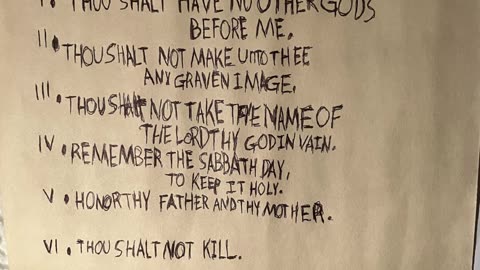 I. THOU SHALT HAVE NO OTHER GODS
BEFORE ME.
II. THOU SHALT NOT MAKE UNTO THEE
ANY GRAVEN IMAGE.
III. THOU SHALT NOT TAKE THE NAME OF
THE LORD THY GOD IN VAIN.
IV. REMEMBER THE SABBATH DAY,
TO KEEP IT HOLY.
V. HONOR THY FATHER AND THY MOTHER.
VI. THOU SHALT NOT KILL.